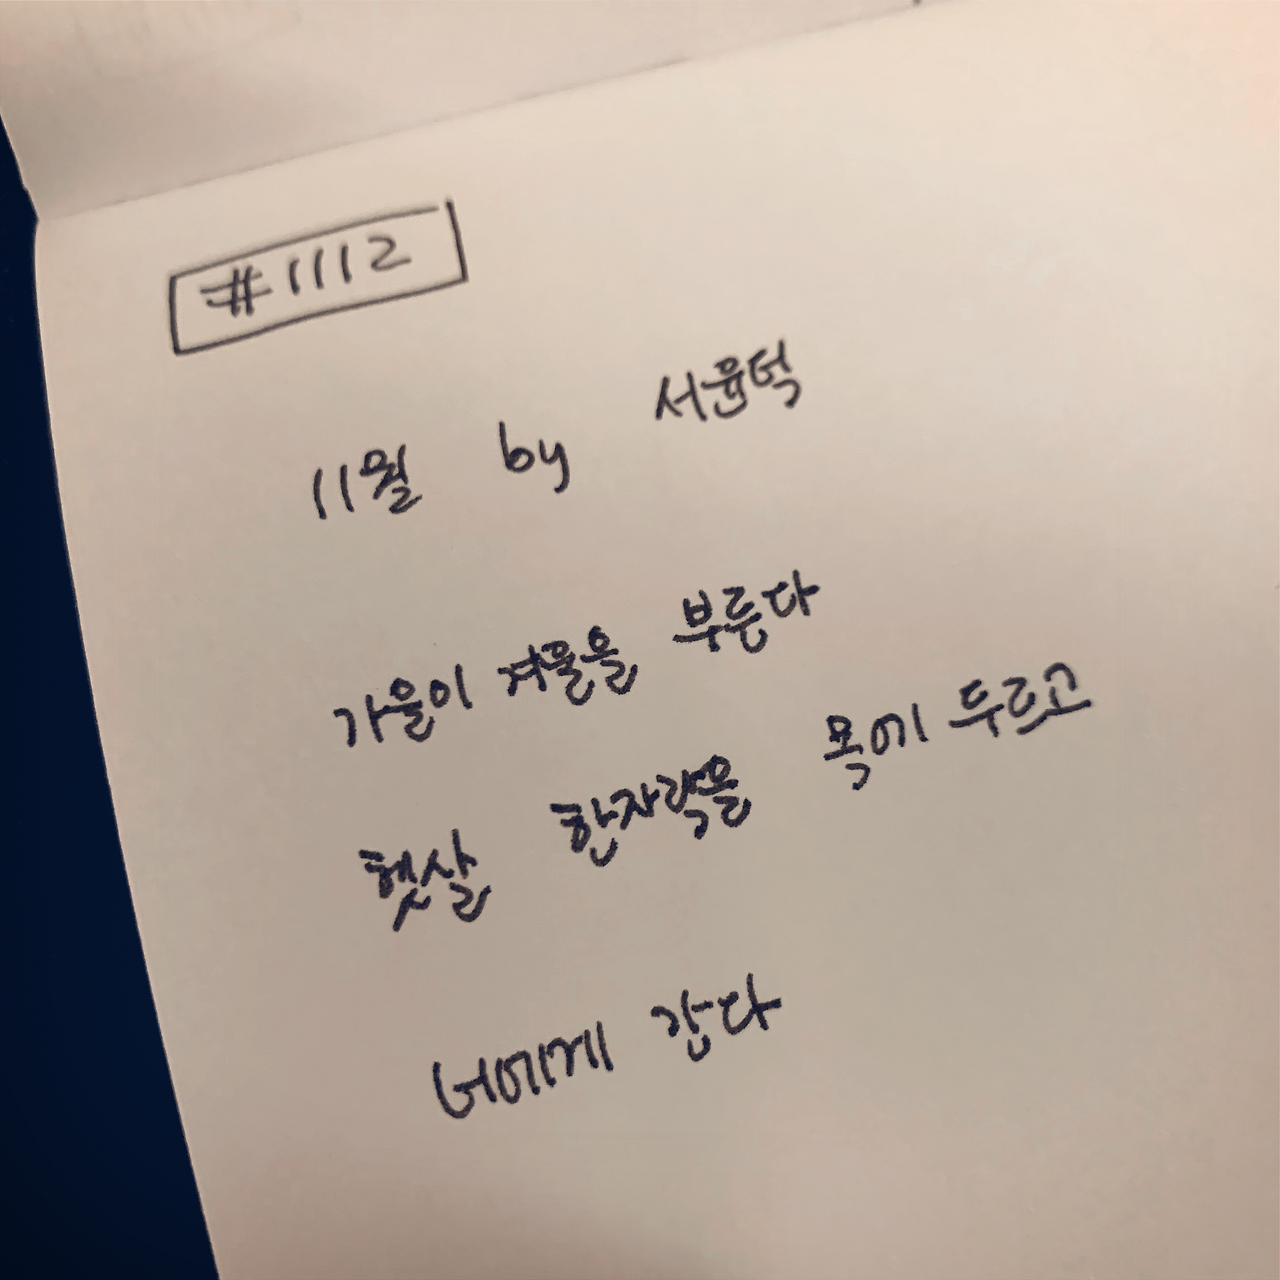 #1112
11월 by 서윤덕
가을이 겨울을 부른다
햇살 한자락을 목에 두르고
너에게 간다